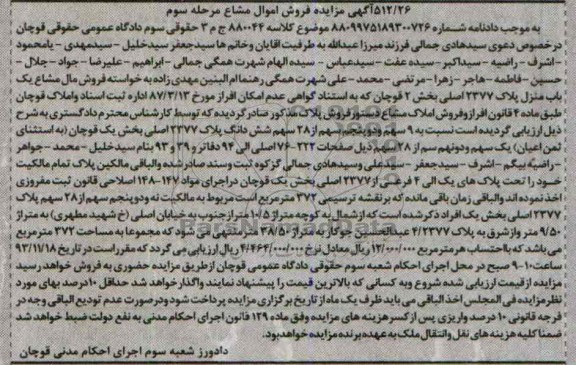 ۵۱۲/۲۶آگهی مزایده فروش اموال مشاع مرحله سوم
به موجب دادنامه شماره ۸۸۰۹۹۷۵۱۸۹۳۰۰۷۲۶ موضوع کلاسه ۸۸۰۰۴۴ ج م ۳ حقوقی سوم دادگاه عمومی حقوقی قوچان
درخصوص دعوی سیدهادی جمالی فرزند میرزا عبدالله به طرفیت اقایان وخانم ها سیدجعفر سیدخلیل - سیدمهدی - پامحمود
- اشرف - راضیه - سیداکبر - سیده عفت - سیدعباس - سیده الهام شهرت همگی جمالی - ابراهیم - علیرضا - جواد - جلال -
حسین - فاطمه - هاجر - زهرا - مرتضی - محمد - علی شهرت همگی رهنما ام البنین مهدی زاده به خواسته فروش مال مشاع یک
باب منزل پلاک ۲۳۷۷ اصلی بخش ۲ قوچان که به استناد گواهی عدم امکان افراز مورخ ۸۷/۳/۱۳ اداره ثبت اسناد واملاک قوچان
طبق ماده ۴ قانون افراز وفروش املاک مشاع دستور فروش پلاک مذکور صادر گردیده که توسط کارشناس محترم دادگستری به شرح
ذیل ارزیابی گردیده است نسبت به ۹ سهم ودو پنجم سهم از ۲۸ سهم شش دانگ پلاک ۲۳۷۷ اصلی بخش یک قوچان (به استثنای
ثمن اعیان) یک سهم ودونهم سم از ۲۸ سهم ذیل صفحات ۲۲۲-۷۶ اصلی الی ۹۴ دفاتر و ۳۹ و ۹۳ بنام سیدخلیل - محمد - جواهر
- راضیه بیگم - اشرف - سیدجعفر - سیدعلی وسیدهادی جمالی گزکوه ثبت وسند صادر شده والباقی مالکین پلاک تمام مالکیت
خود را تحت پلاک های یک الی ۴ فرعی از ۲۳۷۷ اصلی بخش یک قوچان دراجرای مواد ۱۴۷-۱۴۸ اصلاحی قانون ثبت مفروزی
اخذ نموده اند والباقی زمان باقی مانده که بر نقشه ترسیمی ۳۷۲ مترمربع است مربوط به مالکیت نه ودوپنجم سهم از ۲۸ سهم پلاک
۲۳۷۷ اصلی بخش یک افراد ذکر شده است که از شمال به کوچه متراژ ۱۰/۵ متر از جنوب به خیابان اصلی (خ شهید مطهری) به متراژ
۹/۵۰ متر واز شرق به پلاک ۴/۲۳۷۷ عبدالحسین خورگاه به متراژ ۳۸/۵۰ متر محدود می شود که مجموعا به مساحت ۳۷۲ مترمربع
می باشد که بااحتساب هر مترمربع ۱۲/۰۰۰/۰۰۰ ریال معادل نرخ ۴/۴۶۴/۰۰۰/۰۰۰ ریال ارزیابی می گردد که مقرر است در تاریخ ۹۳/۱۱/۱۸
ساعت ۱۰-۹ صبح در محل اجرای احکام شعبه سوم حقوقی دادگاه عمومی قوچان از طریق مزایده حضوری به فروش خواهد رسید
مزایده از قیمت ارزیابی شده شروع وبه کسانی که بالاترین قیمت را پیشنهاد نمایند واگذار خواهد شد حداقل ۱۰ درصد بهای مورد
نظر مزایده فی المجلس اخذ الباقی می باید ظرف یک ماه از تاریخ برگزاری مزایده پرداخت شود ودرصورت عدم تودیع الباقی وجه در
فرجه قانونی ۱۰ درصد واریزی پس از کسر هزینه های مزایده وفق ماده ۱۲۹ قانون اجرای احکام مدنی به نفع دولت ضبط خواهد شد
ضمنا کلیه هزینه های نقل وانتقال ملک به عهده برنده مزایده خواهد بود.
دادورز شعبه سوم اجرای احکام مدنی قوچان